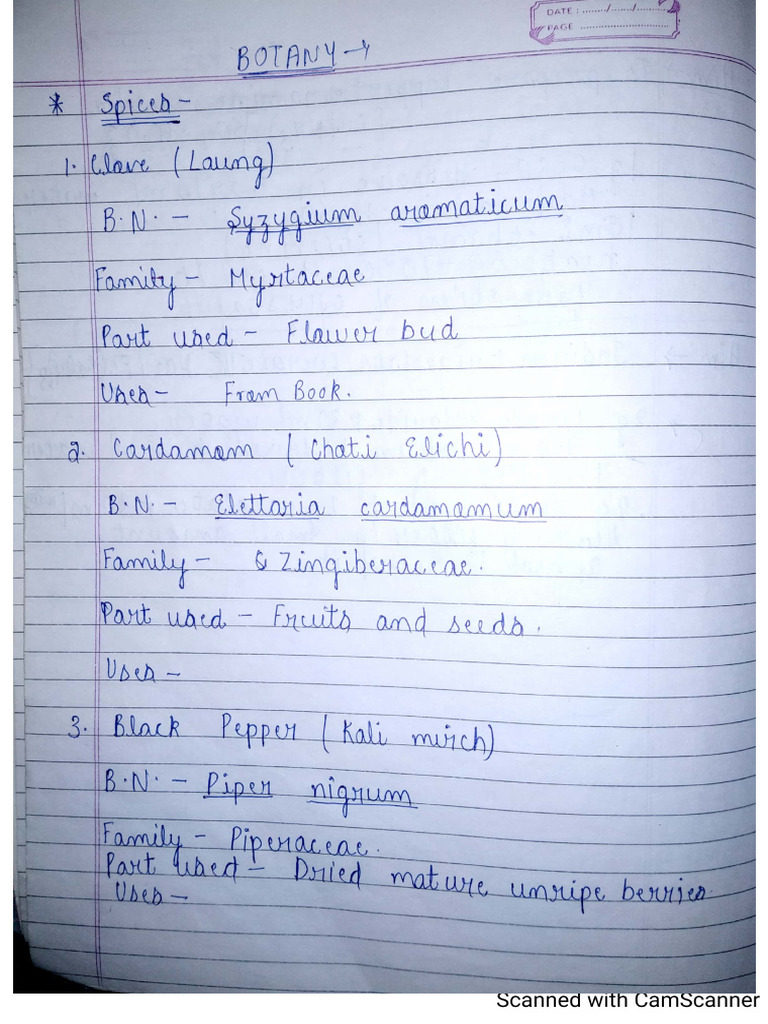 DATE : ......../......./.......
PAGE ..........................
BOTANY →
* Spices -
1. Clove (Laung)
B.N. - Syzygium aromaticum
Family - Myrtaceae
Part used - Flower bud
Uses - From Book.
2. Cardamom (Choti Elichi)
B.N. - Elettaria cardamomum
Family - Zingiberaceae.
Part used - Fruits and seeds.
Uses -
3. Black Pepper (Kali mirch)
B.N. - Piper nigrum
Family - Piperaceae.
Part used - Dried mature unripe berries
Uses -
Scanned with CamScanner